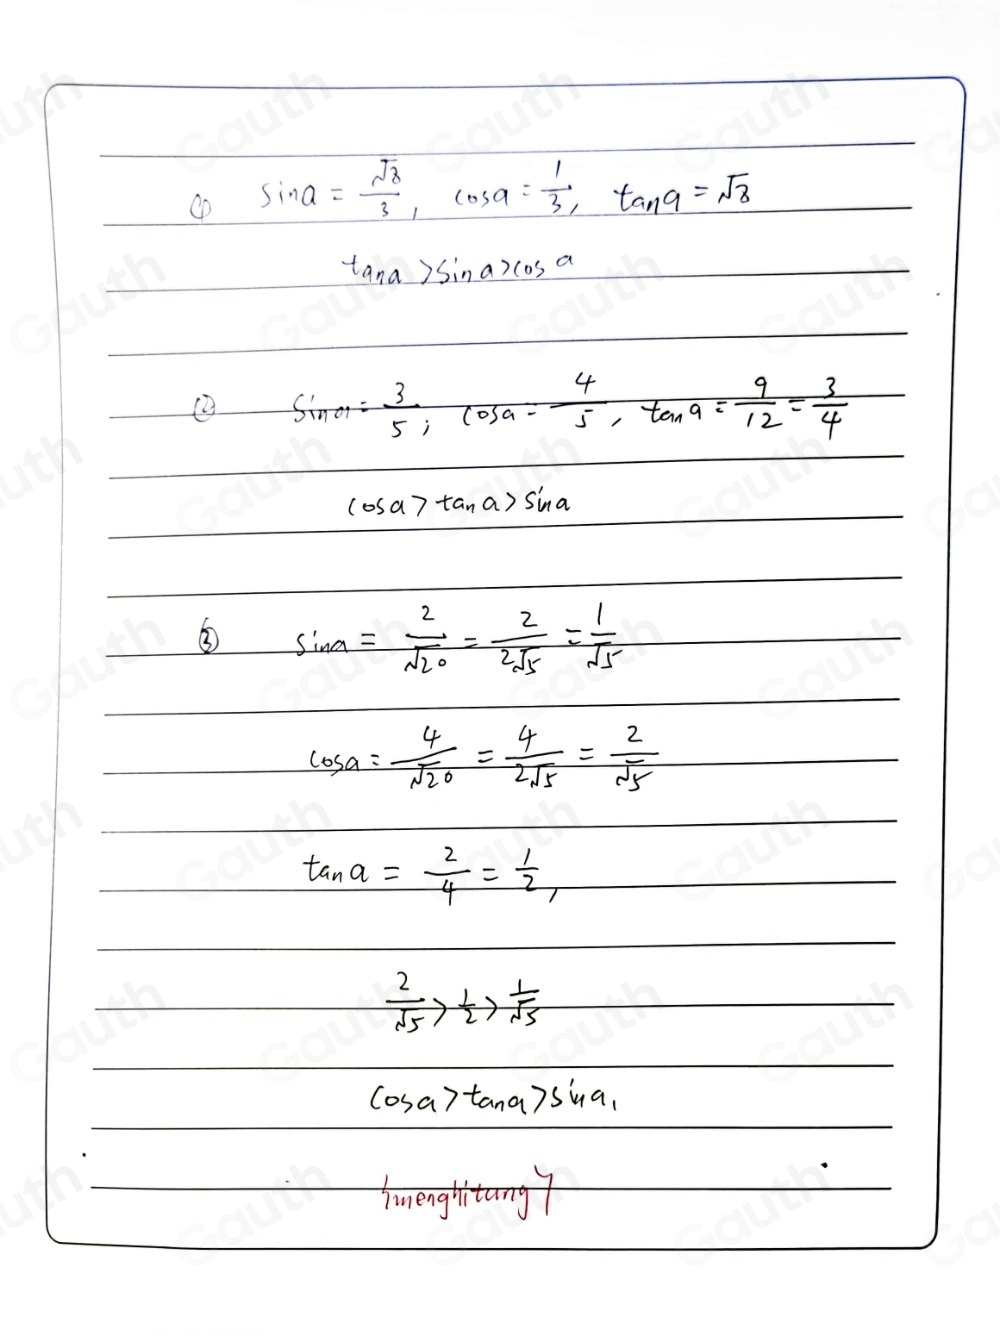 ① sina = √8/3, cosa = 1/3, tana = √8
tana > sina > cosa
② sina = 3/5; cosa = 4/5, tana = 9/12 = 3/4
cosa > tana > sina
③ sina = 2/√20 = 2/2√5 = 1/√5
cosa = 4/√20 = 4/2√5 = 2/√5
tana = 2/4 = 1/2,
2/√5 > 1/2 > 1/√5
cosa > tana > sina,